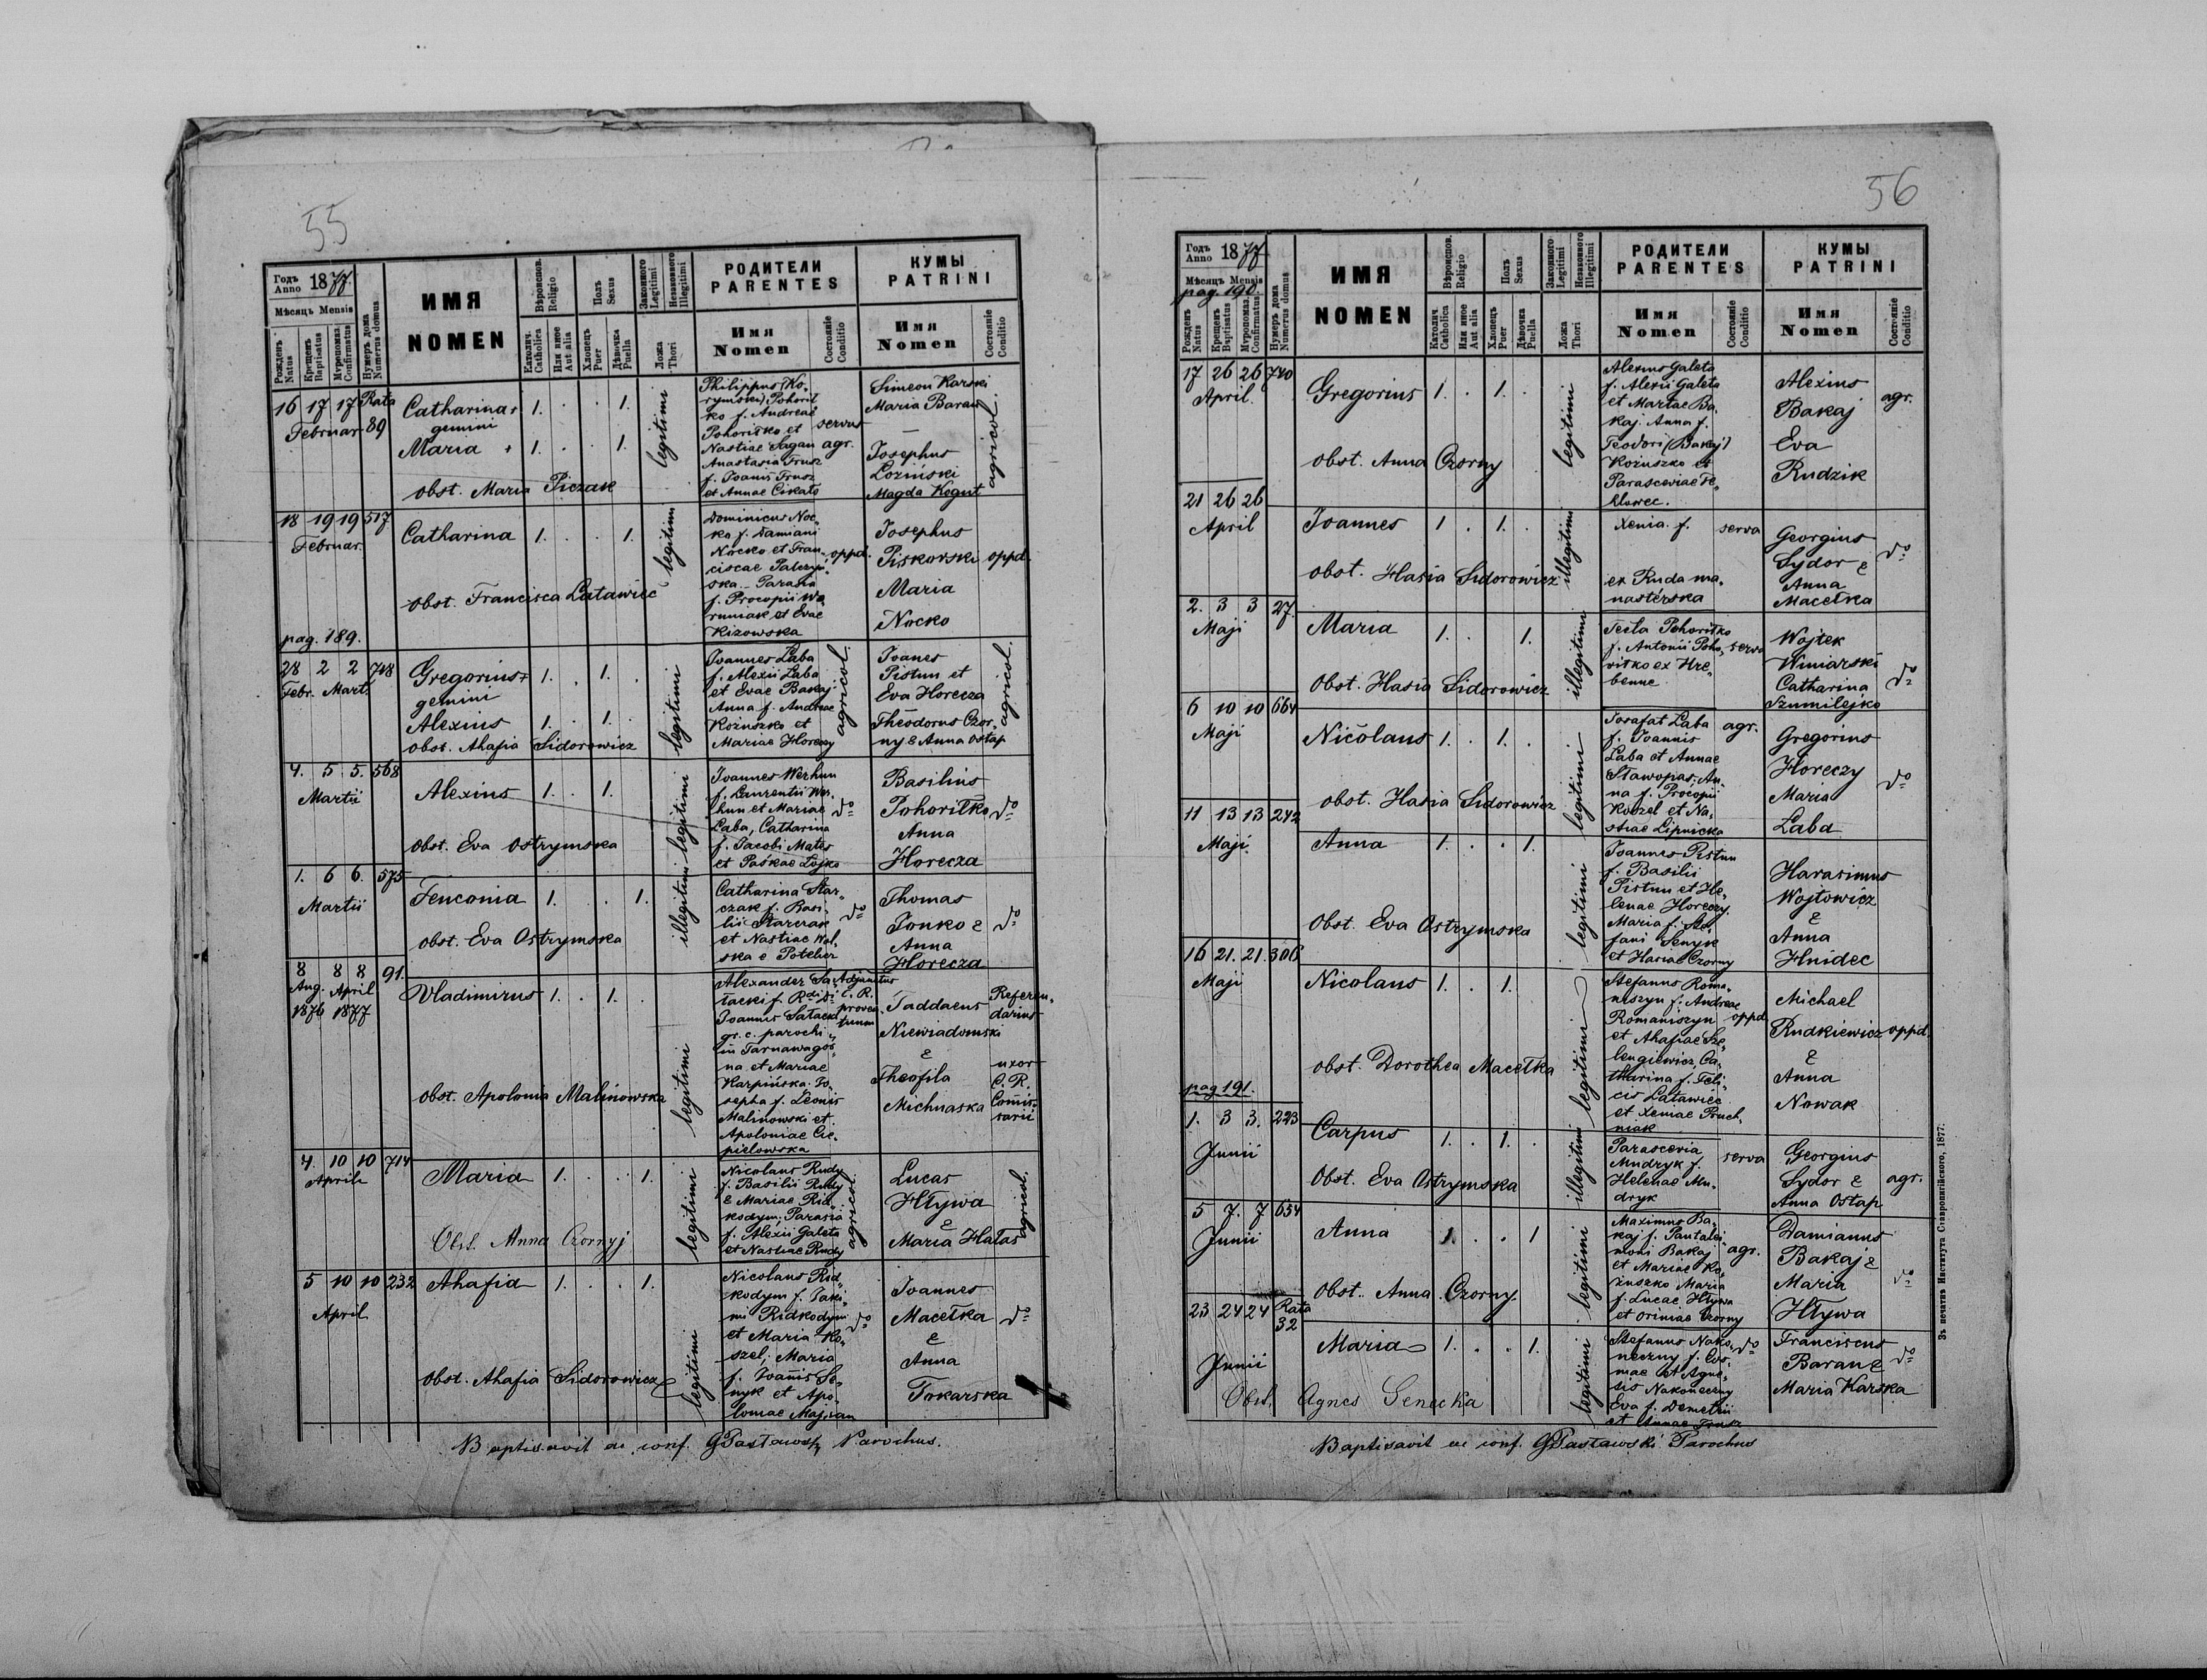 55
Годъ Anno 1877.
Мѣсяцъ Mensis
Рожденъ Natus
Крещенъ Baptisatus
Мѵропомаз. Confirmatus
Нумеръ дома Numerus domus
ИМЯ
NOMEN
Вѣроиспов. Religio
Католич. Catholica
Или иное Aut alia
Полъ Sexus
Хлопецъ Puer
Дѣвочка Puella
Законного Legitimi
Незаконного Illegitimi
Ложа Thori
РОДИТЕЛИ
PARENTES
Имя
Nomen
Состояніе Conditio
КУМЫ
PATRINI
Имя
Nomen
Состояніе Conditio
16 17 17 Rata
Februar. 89
Catharina +
gemini
Maria +
1. . . 1.
1. . . 1.
obst. Maria Piczak
legitimi
Philippus (Ko-
rymski) Pohorił
ko f. Andreae
Pohoriłko et
Nastiae Sagan
Anastasia Frusz
f. Joanis Frusz
et Annae Cikało
servus
agr.
Simeon Karski
Maria Baran
Josephus
Loziński
Magda Kogut
agricol.
18 19 19 517
Februar.
Catharina
1. . . 1.
obst. Francisca Latawiec
legitimi
Dominicus Noc-
ko f. Damiani
Nocko et Fran-
ciscae Palczyń-
ska. Parasia
f. Procopii Wa
runiak et Evae
Kizowska
oppd.
Josephus
Piskorski
Maria
Nocko
oppd.
pag. 189.
28 2 2 748
Febr. Mart.
Gregorius +
gemini
Alexius
1. . 1. .
1. . 1. .
obst. Ahafia Sidorowicz
legitimi
Joannes Laba
f. Alexii Laba
et Evae Bakaj
Anna f. Andreae
Kożuszko et
Mariae Horeczy
agricol.
Joanes
Pistun et
Eva Horecza
Theodorus Czor-
ny & Anna Ostap
agricol.
4. 5 5. 568
Martii
Alexius
1. . 1.
obst. Eva Ostrymska
legitimi
Joannes Werhun
f. Laurentii Wer-
hun et Mariae
Laba, Catharina
f. Jacobi Matys
et Paśkae Łojko
do
Basilius
Pohoriłko
Anna
Horecza
do
1. 6 6. 575
Martii
Fenconia
1. . . 1.
obst. Eva Ostrymska
illegitimi
Catharina Star-
czak f. Basi-
lii Starczak
et Nastiae Wol-
ska e Potelicz
do
Thomas
Jonko &
Anna
Horecza
do
8 8 8 91.
Aug. April
1876 1877
Vladimirus
1. . 1.
obst. Apolonia Malinowska
legitimi
Alexander Sa-
łacki f. Rdi Di
Joannis Sałacki
gr. c. parochi
in Tarnawagor-
na et Mariae
Karpińska. Jo-
sepha f. Leonis
Malinowski et
Apoloniae Cie-
pielowska
Adjunctus
C. R.
proven-
tuum
Taddaeus
Niewiadomski
&
Theofila
Michnaska
Referen-
darius
uxor
C. R.
Comis-
sarii
4. 10 10 714
Aprili
Maria
1. . . 1.
Obst. Anna Czornyj
legitimi
Nicolaus Rudy
f. Basilii Rudy
& Mariae Rid-
kodym; Parasia
f. Alexii Galeta
et Nastiae Rudy
agricol.
Lucas
Hływa
&
Maria Hałas
agricol.
5 10 10 232
April
Ahafia
1. . . 1.
obst. Ahafia Sidorowicz
legitimi
Nicolaus Rid-
kodym f. Jaki-
mi Ridkodym
et Maria Ko-
szel; Maria
f. Joanis Se-
nyk et Apo-
loniae Majdan
do
Joannes
Macełka
&
Anna
Tokarska
do
Baptisavit ac conf. GPasławsky Parochus.
56
Годъ Anno 1877
Мѣсяцъ Mensis
pag. 190.
Рожденъ Natus
Крещенъ Baptisatus
Мѵропомаз. Confirmatus
Нумеръ дома Numerus domus
ИМЯ
NOMEN
Вѣроиспов. Religio
Католич. Catholica
Или иное Aut alia
Полъ Sexus
Хлопецъ Puer
Дѣвочка Puella
Законного Legitimi
Незаконного Illegitimi
Ложа Thori
РОДИТЕЛИ
PARENTES
Имя
Nomen
Состояніе Conditio
КУМЫ
PATRINI
Имя
Nomen
Состояніе Conditio
17 26 26 740
April.
Gregorius
1. . 1. .
obst. Anna Czorny
legitimi
Alexius Galeta
f. Alexii Galeta
et Mariae Ba-
kaj. Anna f.
Teodori (Bakaj)
Kożuszko et
Parasceviae Fe-
dlowec.
Alexius
Bakaj
Eva
Rudzik
agr.
21 26 26
April
Joannes
1 . 1. .
obst. Hasia Sidorowicz
illegitimi
Xenia f.
ex Ruda ma-
nasterska
serva
Georgius
Sydor &
Anna
Macełka
do
2. 3 3 27.
Maji
Maria
1. . 1.
Obst. Hasia Sidorowicz
illegitimi
Tecla Pohoriłko
f. Antonii Poho-
riłko ex Hre-
benne
serva
Wojtek
Winiarski
Catharina
Szumilejko
do
6 10 10 664
Maji
Nicolaus
1. . 1. .
obst. Hasia Sidorowicz
legitimi
Josafat Laba
f. Joannis
Laba et Annae
Sławopas; An-
na f. Procopii
Koszel et Na-
stiae Lipnicka
agr.
Gregorius
Horeczy
Maria
Laba
do
11 13 13 242
Maji
Anna
1. . . 1.
Obst. Eva Ostrymska
legitimi
Joannes Pistun
f. Basilii
Pistun et He-
lenae Horeczy.
Maria f. Ste-
fani Senyk
et Hasiae Czorny
Harasimus
Wojtowicz
&
Anna
Hnidec
16 21. 21. 306
Maji
Nicolaus
1. . 1.
obst. Dorothea Macełka
legitimi
Stefanus Roma-
niszyn f. Andreae
Romaniszyn
et Ahafiae Sze-
lengiewicz Ca-
tharina f. Feli-
cis Latawiec
et Xeniae Pruch-
niak
oppd.
Michael
Rudkiewicz
&
Anna
Nowak
oppd.
pag 191.
1. 3 3. 223
Junii
Carpus
1. . 1. .
Obst. Eva Ostrymska
illegitimi
Parascevia
Mudryk f.
Helenae Mu-
dryk
serva
Georgius
Sydor &
Anna Ostap
agr.
5 7. 7 654
Junii
Anna
1. . . 1
obst. Anna Czorny.
legitimi
Maximus Ba-
kaj f. Pantalei-
moni Bakaj
et Mariae Ko-
żuszko Maria
f. Lucae Hływa
et Oriniae Czorny
agr.
Damianus
Bakaj &
Maria
Hływa
do
23 24 24 Rata
32
Junii
Maria
1. . . 1.
Obst. Agnes Senecka
legitimi
Stefanus Nako-
neczny f. Cos-
mae et Agne-
tis Nakoneczny
Eva f. Demetrii
et Annae Frusz
do
Franciscus
Baran &
Maria Karska
do
Baptisavit ac conf. GPasławski Parochus
Зъ печатнѣ Института Ставропигійского, 1877.